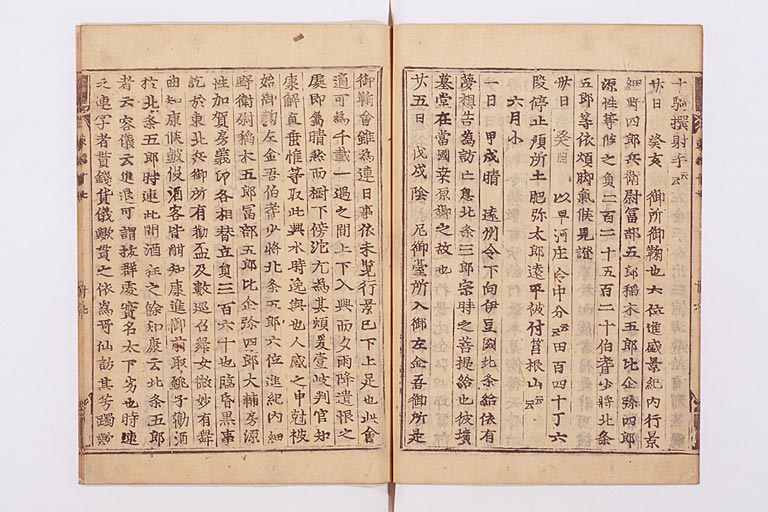 十騎撰射手云云
廿日 癸亥 御所御鞠也六位進盛景紀内行景
細野四郎兵衛尉冨部五郎稲木五郎比企弥四郎
源性等候之負二百二十五百二十伯耆少將北条
五郎等依煩脚氣候見證
廿日 癸酉 以甲河庄令中分云云田百四十丁六
段停止預所土肥弥太郎遠平被付莒根山云云
六月小
一日 甲戌晴 遠例令下向伊豆國北条給依有
夢想告為訪亡息北条三郎宗時之菩提給也彼墳
墓堂在當國桒原郷之故也
廿五日 戊戌陰 尼御臺所入御左金吾御所是
御鞠會雖為連日事依未覧行景已下上足也此會
適可為千載一遇之間上下入興而夕雨降遺恨之
處即属晴然而樹下滂沱尤為其煩爰壹岐判官知
康解直垂帷等取此興水時逸興也人感之申尅被
始御鞠左金吾伯耆少將北条五郎六位進紀内細
野衛尉稲木五郎冨部五郎比企弥四郎大輔房源
性加賀房義印各相替立負三百六十也臨昏黒事
訖於東北兵御所有勸盃及數巡召舞女微妙有舞
曲知康候鼓役酒客皆酣知康進御前取銚子勸酒
於北条五郎時連此間酒狂之餘知康云北条五郎
者云容儀云進退可謂抜群處實名太下劣也時連
之連字者貫錢貨儀歟貫之依為哥仙訪其芳躅歟